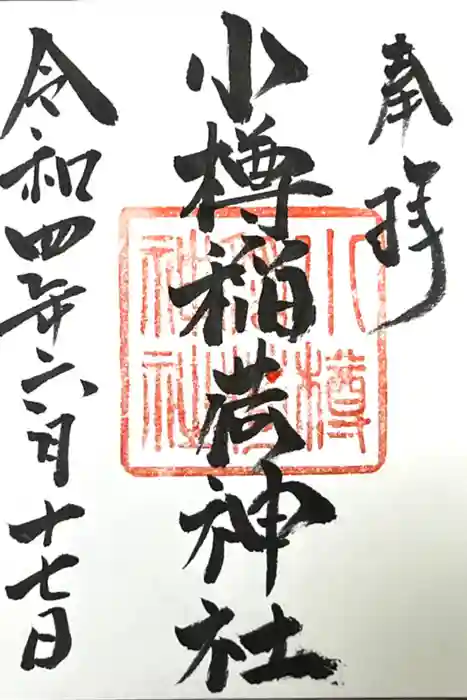 奉拝
小樽稲荷神社
令和四年六月十七日
小樽
稲荷
神社